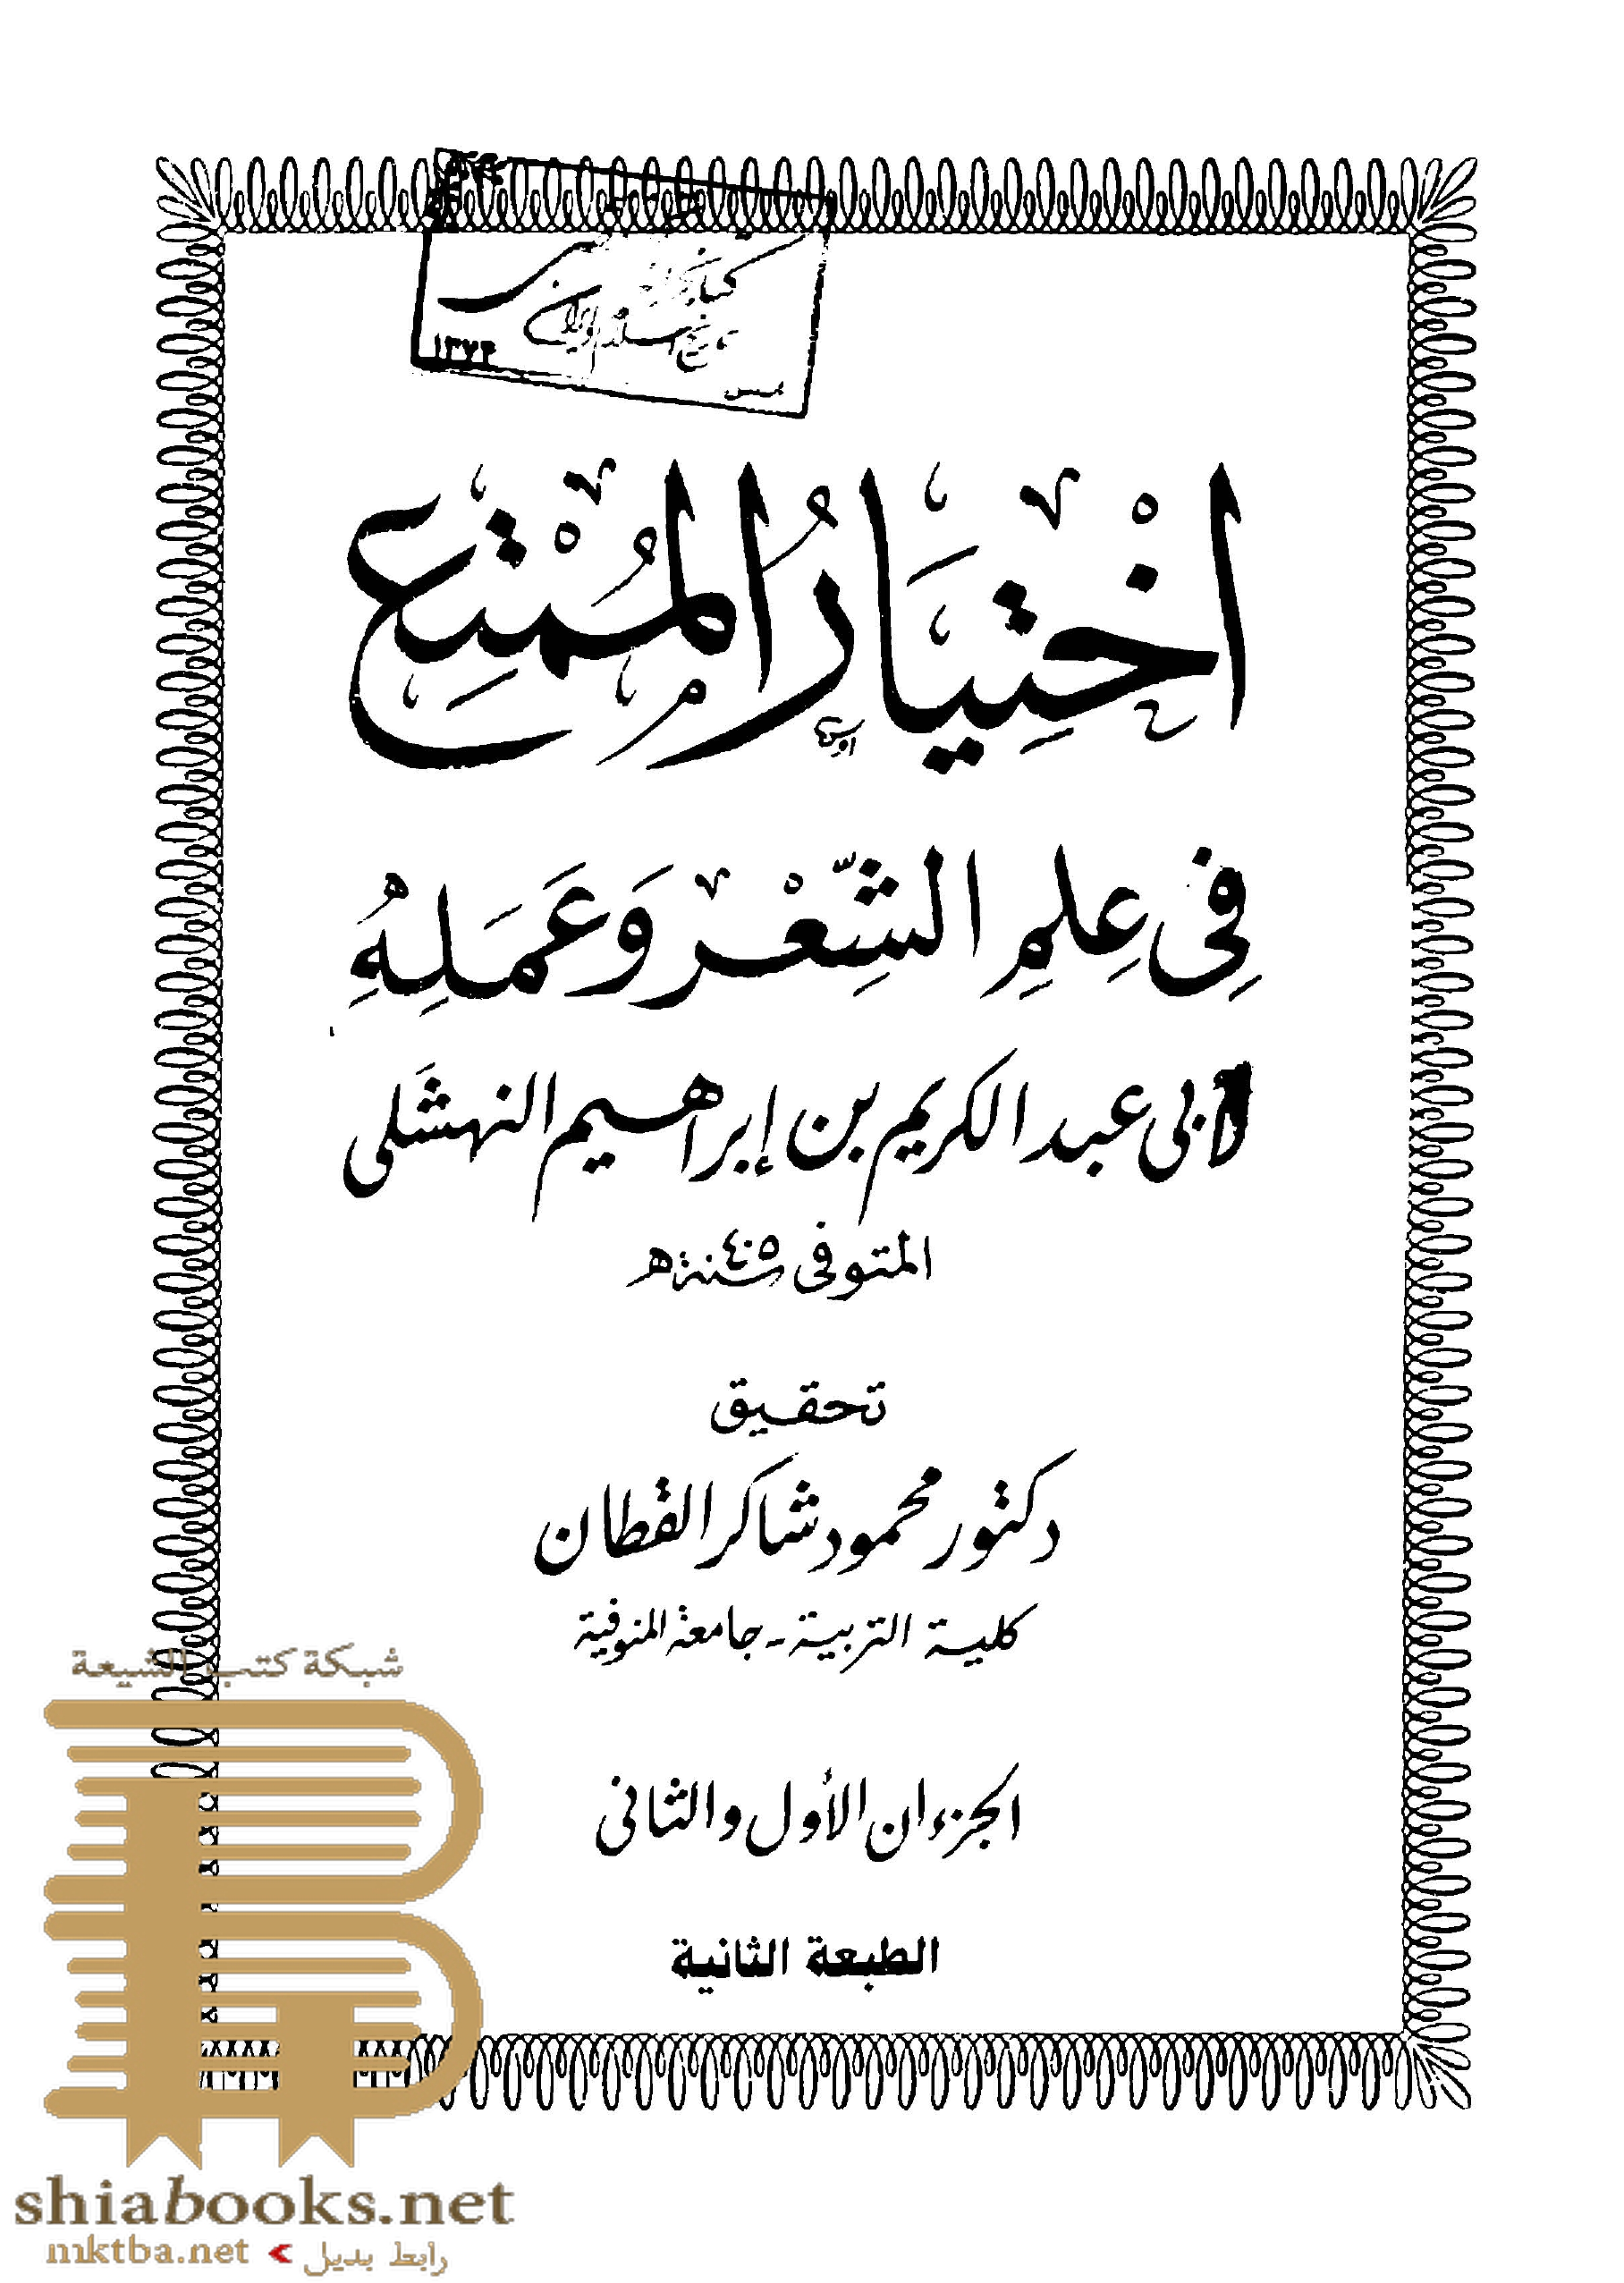 ١٣٧٣
اخْتِيَارُ المُمْتِع
فِى عِلمِ الشِّعْر وَعَمَلِهِ
لأبى عبد الكريم بن إبراهيم النهشَلى
المتوفى سنة ٤٠٥ هـ
تحقيق
دكتور محمود شاكر القطان
كلية التربية - جامعة المنوفية
الجزءان الأول والثانى
الطبعة الثانية
شبكة كتب الشيعة
shiabooks.net
mktba.net < رابط بديل